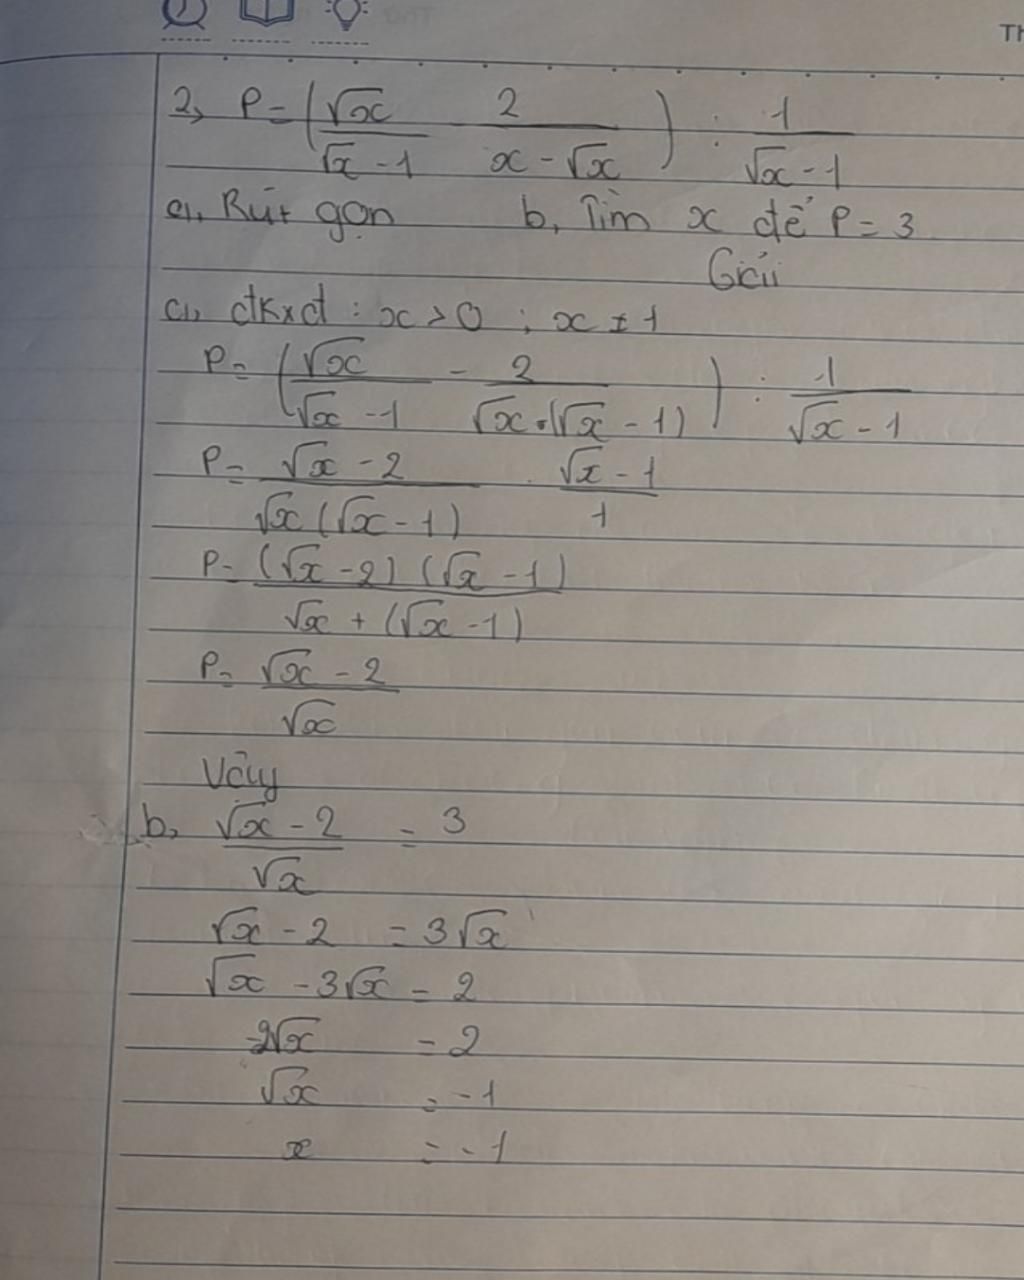 TH
2, P = (√x/(√x - 1) - 2/(x - √x)) : 1/(√x - 1)
a, Rút gọn b, Tìm x để P = 3
Giải
a, đkxđ : x > 0 ; x ≠ 1
P = (√x/(√x - 1) - 2/(√x.(√x - 1))) : 1/(√x - 1)
P = (√x - 2)/(√x (√x - 1)) . (√x - 1)/1
P = (√x - 2) (√x - 1)/(√x + (√x - 1))
P = (√x - 2)/√x
Vậy
b, (√x - 2)/√x = 3
√x - 2 = 3√x
√x - 3√x = 2
-2√x = 2
√x = -1
x = -1